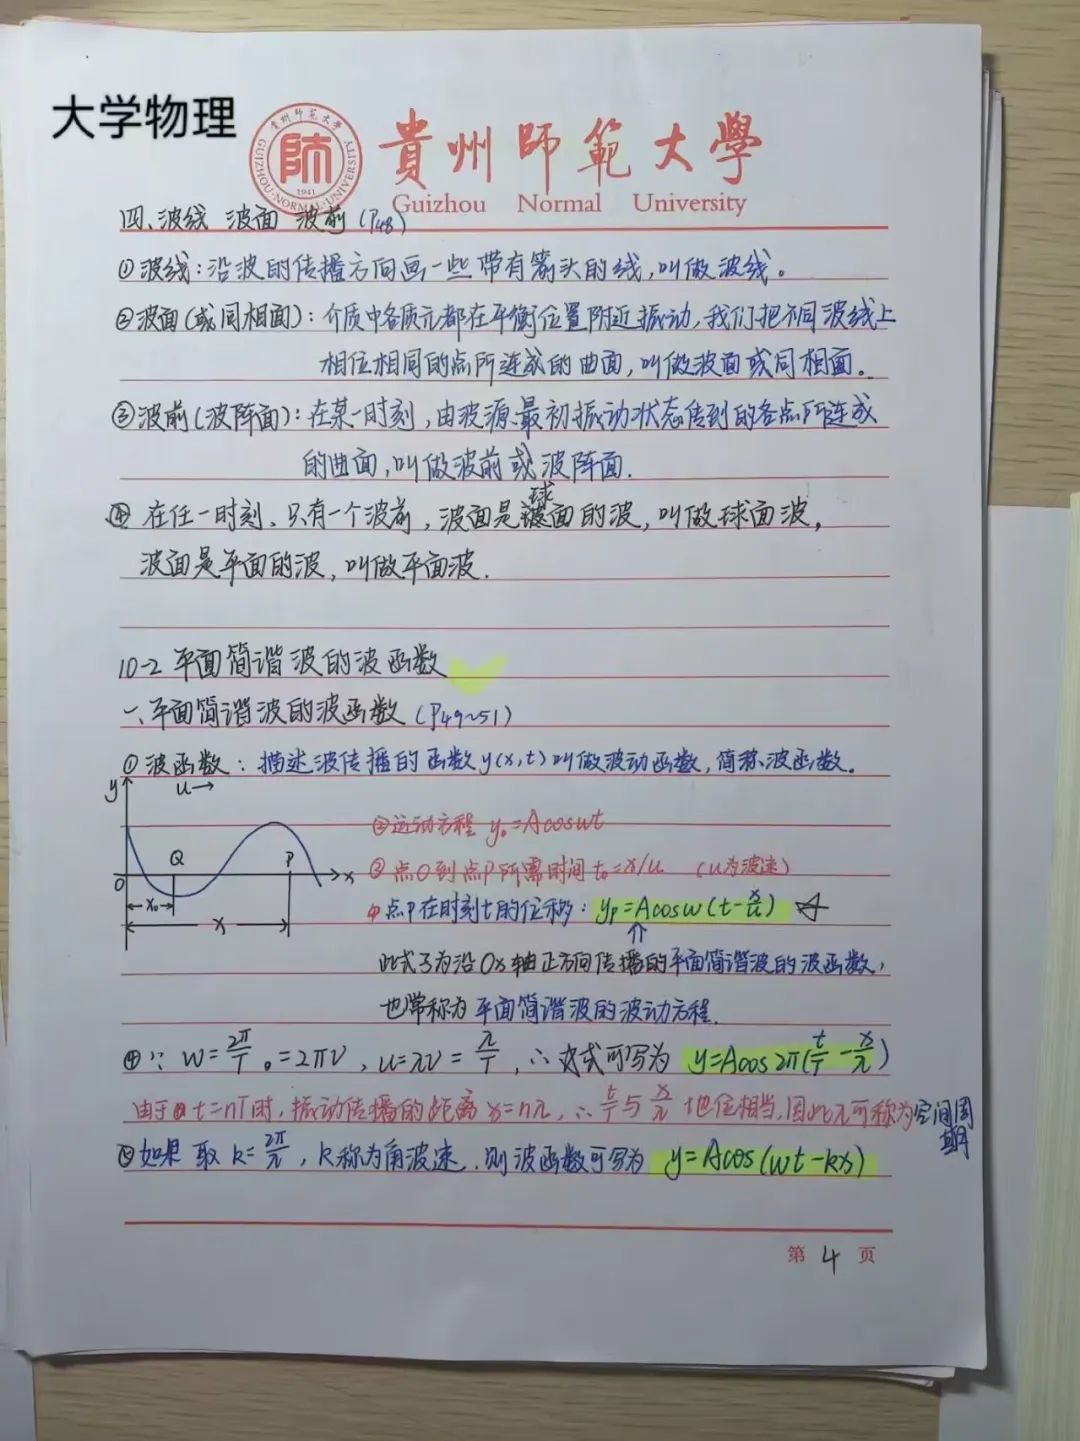 大学物理
貴州師範大學
貴州師范大學
GUIZHOU·NORMAL·UNIVERSITY
師
1941
Guizhou Normal University
四、波线 波面 波前(P48)
①波线:沿波的传播方向画一些带有箭头的线,叫做波线。
②波面(或同相面):介质中各质元都在平衡位置附近振动,我们把不同波线上
相位相同的点所连成的曲面,叫做波面或同相面。
③波前(波阵面):在某一时刻,由波源最初振动状态传到的各点所连成
的曲面,叫做波前或波阵面.
④在任一时刻、只有一个波前,波面是球面的波,叫做球面波,
波面是平面的波,叫做平面波.
10-2 平面简谐波的波函数
一、平面简谐波的波函数(P49~51)
①波函数:描述波传播的函数y(x,t)叫做波动函数,简称波函数。
y u→
Q P x
O x₀ x
②运动方程 y₀=Acoswt
③点O到点P所需时间t₀=x/u (u为波速)
点P在时刻t的位移:yp=Acosw(t-x/u)
此式子为沿Ox轴正方向传播的平面简谐波的波函数,
也常称为平面简谐波的波动方程.
④∵w=2π/T。=2πν,u=λν=λ/T,∴式可写为 y=Acos2π(t/T-x/λ)
由于t=nT时,振动传播的距离x=nλ,∴t/T与x/λ地位相当,因此λ可称为空间周
期
⑤如果取k=2π/λ,k称为角波速.则波函数可写为 y=Acos(wt-kx)
第4页